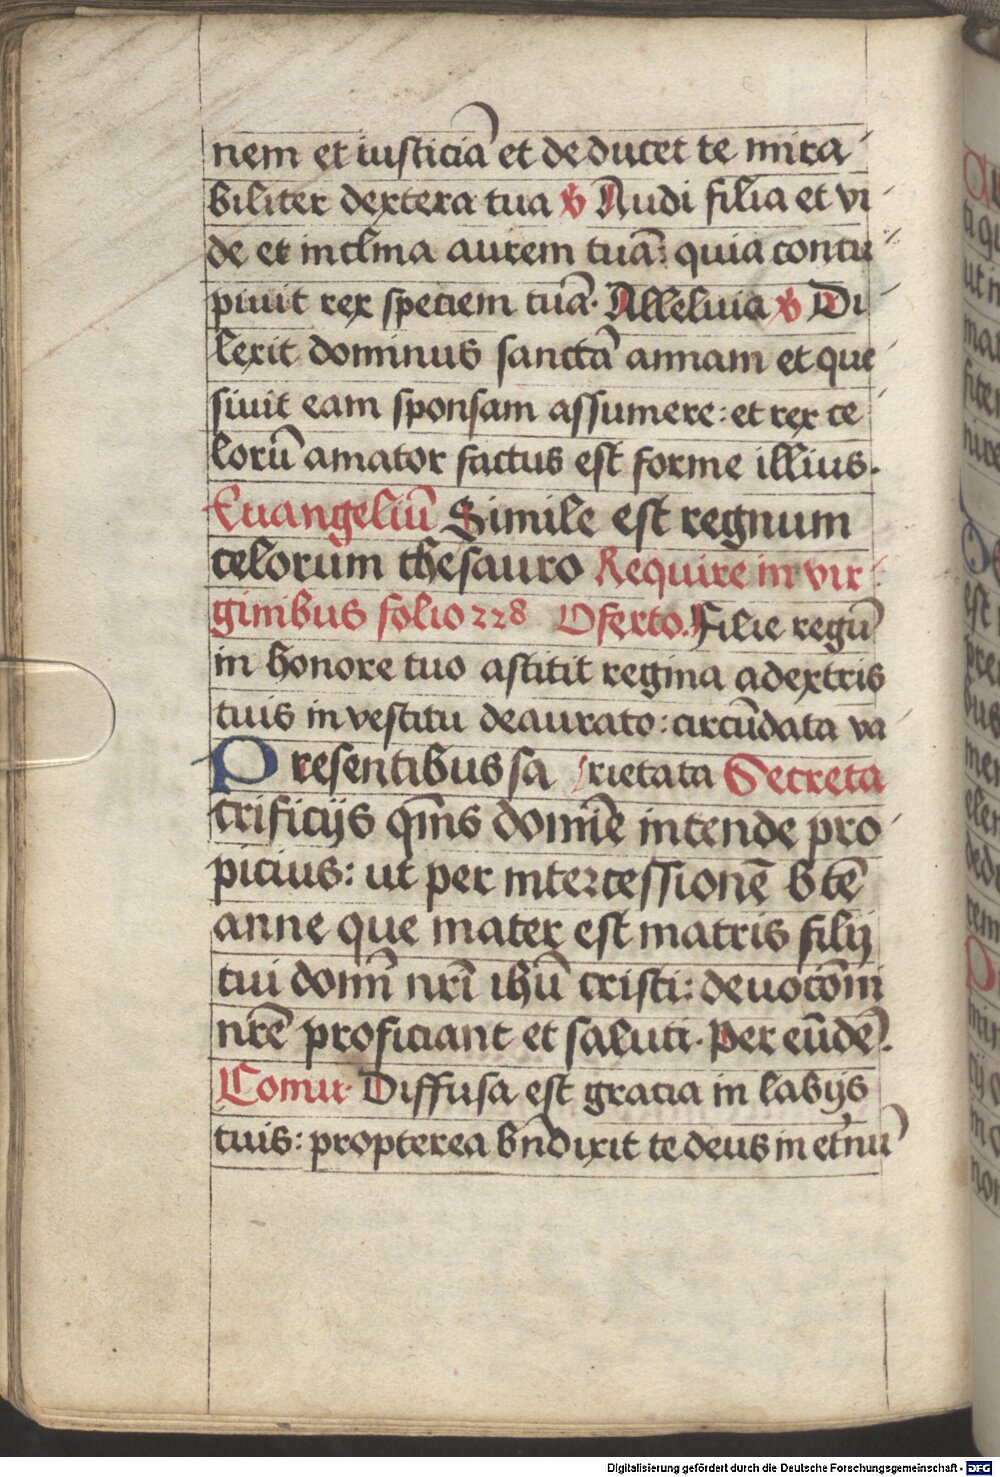 nem et iusticiā et deducet te mira
biliter dextera tua ℣ Audi filia et vi
de et inclina aurem tuā: quia concu
piuit rex speciem tuā. Alleluia ℣ Di
lexit dominus sanctā annam et que
siuit eam sponsam assumere: et rex ce
lorū amator factus est forme illius.
Euangeliū Simile est regnum
celorum thesauro Require in vir
ginibus folio 228 Oferto. Filie regū
in honore tuo astitit regina adextris
tuis in vestitu deaurato: circūdata va
Presentibus sa rietata Secreta
crificijs qm̄s domīe intende pro
picius: ut per intercessionē btē
anne que mater est matris filij
tui domī nrī ihū cristi: deuocōni
nrē proficiant et saluti. Per eūdē.
Comu. Diffusa est gracia in labijs
tuis: propterea bn̄dixit te deus in et'nū
Digitalisierung gefördert durch die Deutsche Forschungsgemeinschaft - DFG